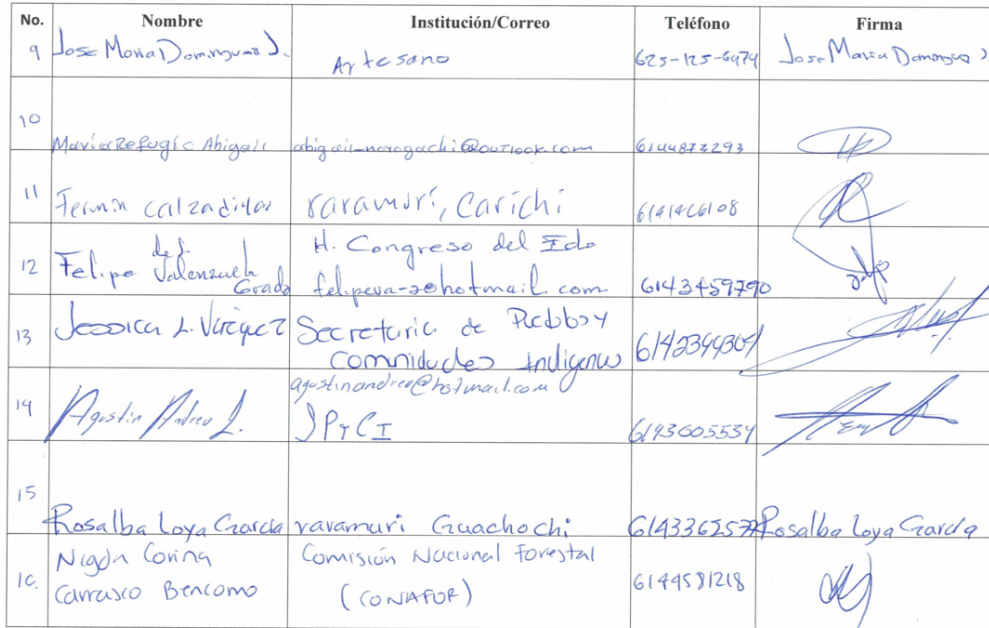 No. Nombre Institución/Correo Teléfono Firma
9 Jose Maria Dominguez J. Artesano 625-125-6974 Jose Maria Dominguez J.
10 Maria Refugio Abigail abigail_norogachi@outlook.com 6144873293
11 Fermin calzadillas raramuri, Carichi 6141466108
12 Felipe de J. Valenzuela Grado H. Congreso del Edo
felipeva-2@hotmail.com 6143459790
13 Jessica L. Vázquez Secretaria de Pueblos y
Comnidades Indigenas 6142344304
agustinandreo@hotmail.com
14 Agustin Andreu L. SPyCI 6143605534
15 Rosalba Loya Garcia raramuri Guachochi Rosalba Loya Garcia
16. Nigda Corina Comisión Nacional Forestal
Carrasco Bencomo (CONAFOR) 6144581218